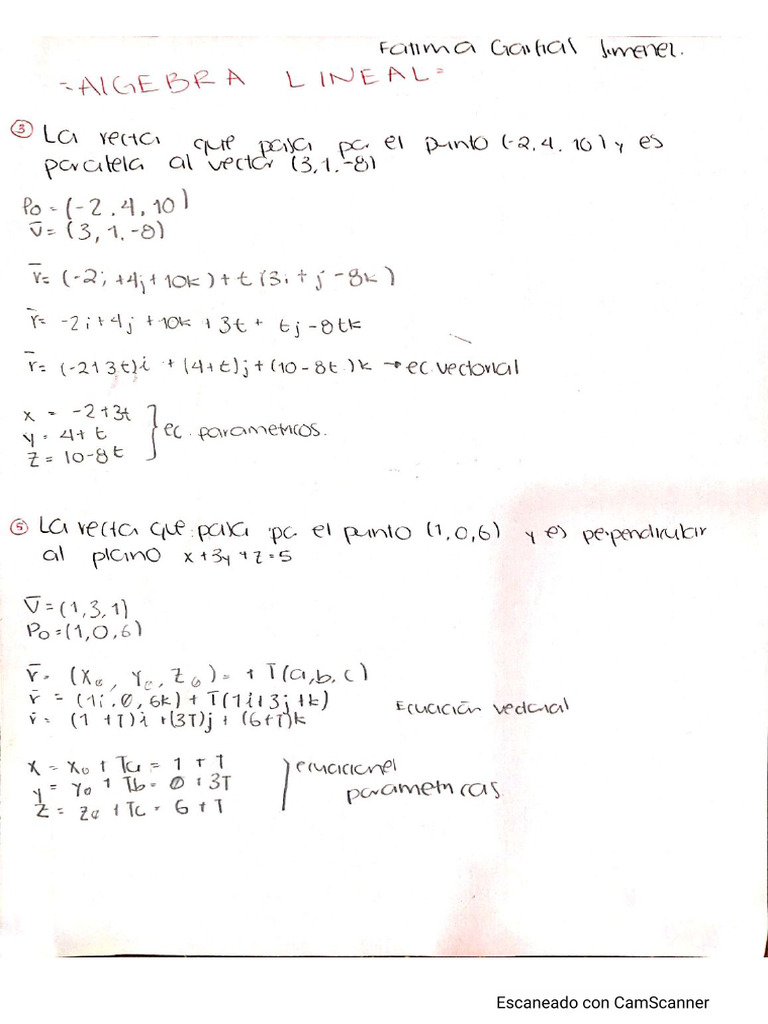 Fatima Garfias Jimenez.
= ALGEBRA LINEAL =
③ La recta que pasa por el punto (-2, 4, 10) y es
paralela al vector (3, 1, -8)
Po = (-2, 4, 10)
v̄ = (3, 1, -8)
r̄ = (-2i + 4j + 10k) + t (3i + j - 8k)
r̄ = -2i + 4j + 10k + 3t + tj - 8tk
r̄ = (-2+3t)i + (4+t)j + (10-8t)k → ec. vectorial
x = -2+3t
y = 4+t
z = 10-8t
} ec. parametricos.
⑤ La recta que pasa por el punto (1,0,6) y es perpendicular
al plano x+3y+z=5
v̄ = (1,3,1)
Po = (1,0,6)
r̄ = (Xo, Yo, Zo) = + T(a,b,c)
r̄ = (1i, 0, 6k) + T(1i+3j+k)
r̄ = (1+T)i + (3T)j + (6+T)k
Ecuación vectorial
x = xo + Ta = 1 + T
y = yo + Tb = 0 + 3T
z = zo + Tc = 6 + T
} ecuaciones
parametricas
Escaneado con CamScanner